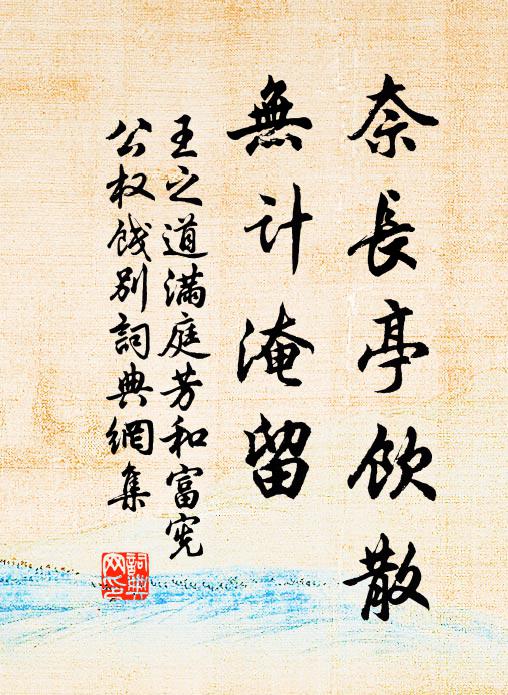 奈長亭飲散
無计淹留
王之道滿庭芳和富宪
公权餞别詞典網集
詞典
网